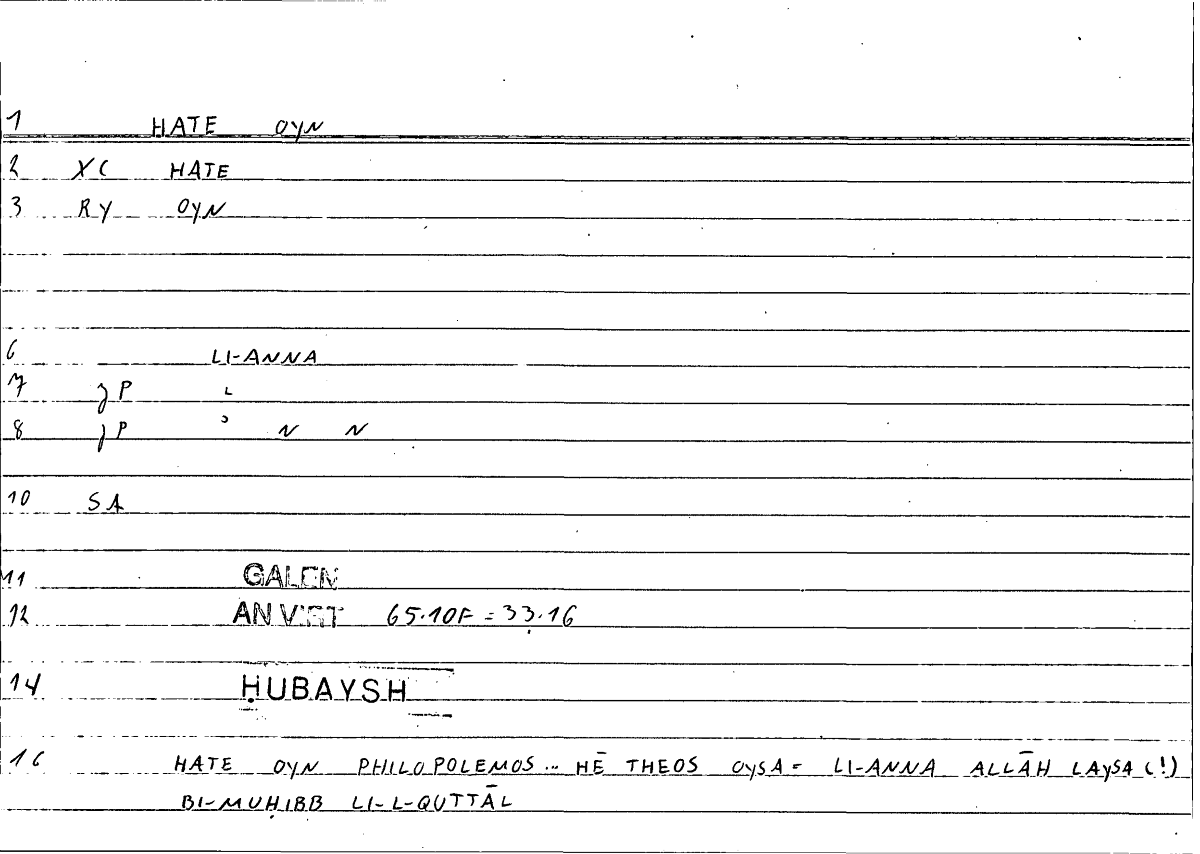 1 HATE OYN
2 XC HATE
3 RY OYN
6 LI-ANNA
7 P L
8 P ʾ N N
10 SA
11 GALEN
12 AN VIRT 65.10F = 33.16
14 ḤUBAYSH
16 HATE OYN PHILOPOLEMOS... HĒ THEOS OYSA = LI-ANNA ALLĀH LAYSA (!)
BI-MUḤIBB LI-L-QUTTĀL